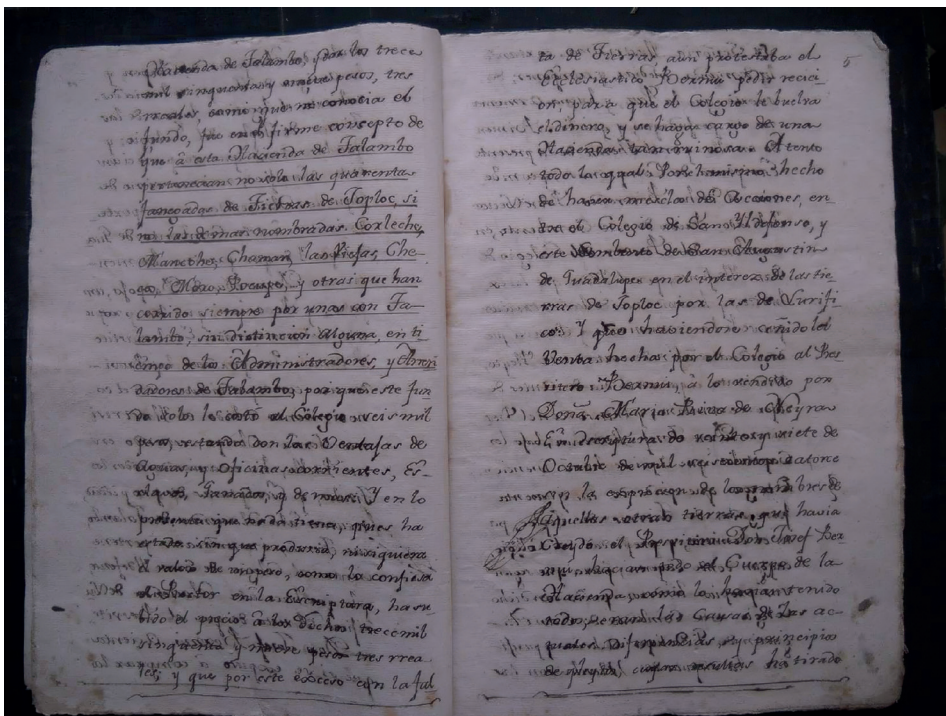 Hacienda de Talambo, por los trece
mil cinquenta y nueve pesos, tres
reales, como que no conocia el
fundo, fue en el firme consepto de
que à esta Hacienda de Talambo
pertenecian no solo las quarenta
fanegadas de Tierras de Toploc, si
no las demas nombradas Corleche,
Mancoche, Chaman, las Riofas, Che-
Moro, Rocupo, y otras que han
corrido siempre por unas con Ta-
lambo, sin distincion alguna, en ti
empo de los Administradores, y Arren
dadores de Talambo; por que este fun
do solo le costó al Colegio seis mil
pesos, estando con las Ventajas de
Aguas, y Oficinas corrientes, Es-
clavos, Ganados, y demas; Y en lo
presente que nada tiene, pues ha
estado sin que produsca, ni siquiera
el valor de un pero, como lo confiesa
el Rector en la Escriptura, ha su
bido el precio à los dichos trece mil
sinquenta y nueve pesos tres rrea-
les; y que por este exceso con la ful
5
ta de Tierras aun protestaba el
Eclesiastico Bermu pedir recici
on, para que el Colegio le buelva
el dinero, y se haga cargo de una
Hacienda tan ruinosa. Atento
à todo lo qual
de haver mesclado de Acciones, en
tre el Colegio de San Yldefonso, y
este Combento de San Augustin
de Guadalupe en el interez de las tie
rras de Toploc por las de Lurifi
co; Y que haviendose ceñido la
Venta hecha por el Colegio al Pres
vitero Bermu, à lo vendido por
Doña Maria Rosa de Neyra
en la Escriptura de veinte y siete de
Octubre de mil setecientos catorce
sin la exprecion de los nombres de
aquellas otras tierras que havia
Creydo el Presvitero Don Josef Ber
el Cuerpo de la
Hacienda, como lo havian tenido
todos, eran las Causas de las ac
tuales Diferencias, y principio
de pleytos, cuyas resultas ha tirado